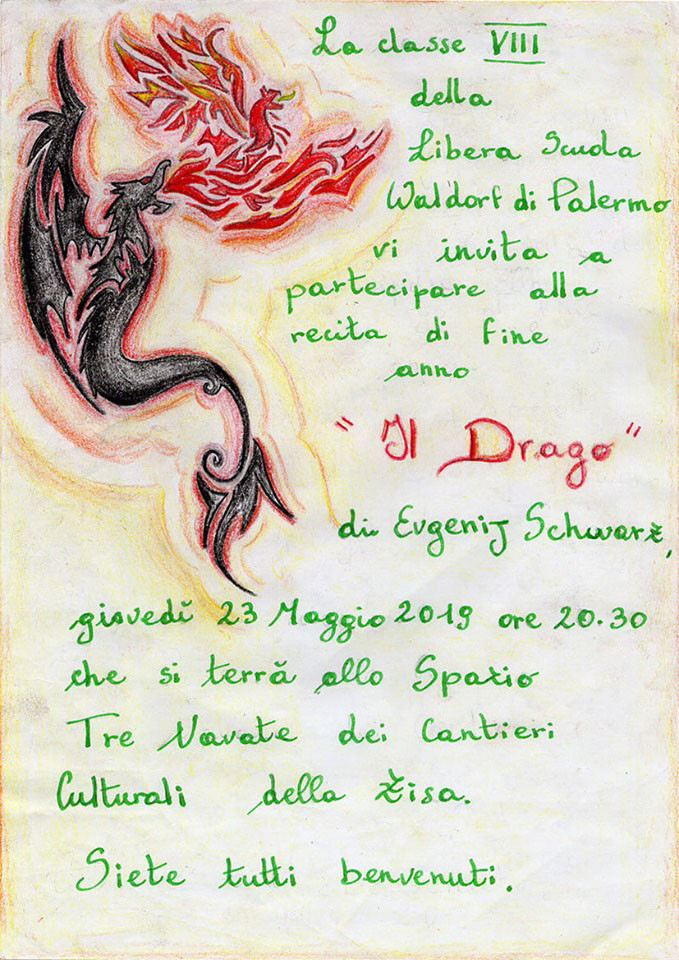 La classe VIII
della
Libera Scuola
Waldorf di Palermo
vi invita a
partecipare alla
recita di fine
anno
"Il Drago"
di Evgenij Schwarz,
giovedì 23 Maggio 2019 ore 20.30
che si terrà allo Spazio
Tre Navate dei Cantieri
Culturali della Zisa.
Siete tutti benvenuti.